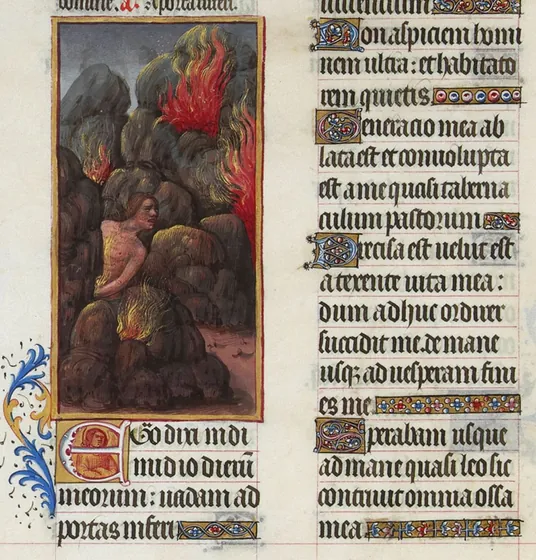 Ego dixi in di
midio dierū
meorum: uadam ad
portas inferi
uiuentium
Non aspiciem homi
nem ultra: et habitato
rem quietis
Generacio mea ab
lata est et conuolupta
est a me quasi taberna
culum pastorum
Precisa est uelut est
a texente uita mea:
dum adhuc ordirer
succidit me. de mane
usqꝫ ad uesperam fini
es me
Sperabam usque
ad mane quasi leo sic
contriuit omnia ossa
mea